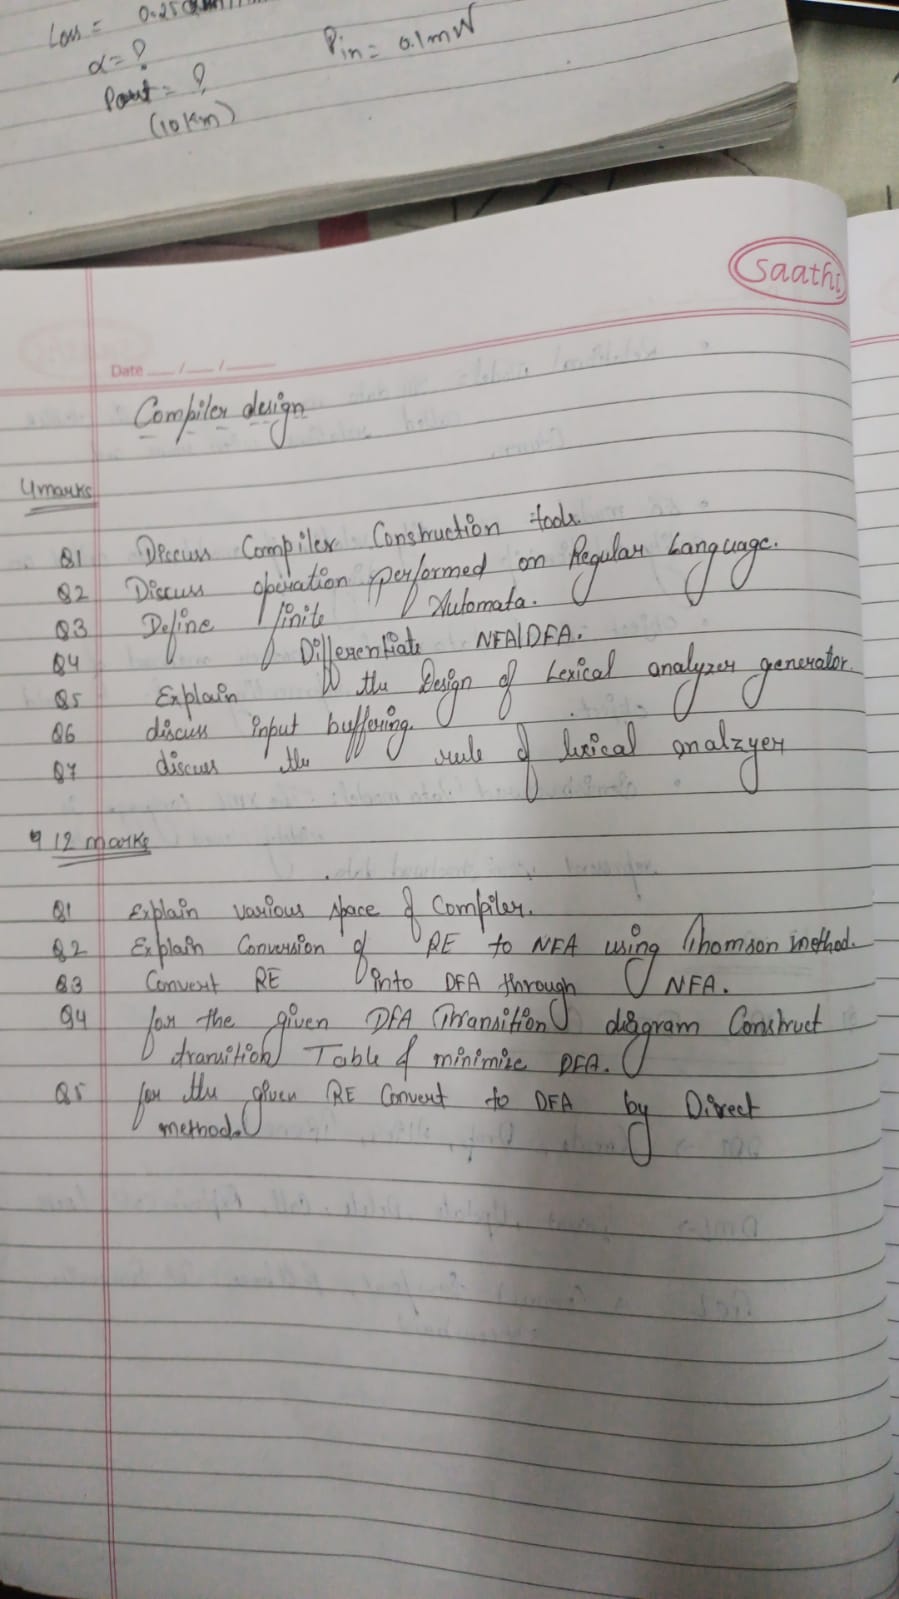 Loss = 0.25
α = ?
Pin = 0.1mW
Pout = ?
(10 Km)
saathi
Date __/__/____
Compiler design
4marks
Q1 Discuss Compiler Construction tools.
Q2 Discuss operation performed on Regular Language.
Q3 Define finite Automata.
Q4 Differentiate NFA|DFA.
Q5 Explain the Design of Lexical analyzer generator.
Q6 discuss input buffering.
Q7 discuss the rule of lexical analzyer
12 marks
Q1 Explain various space of Compiler.
Q2 Explain Conversion of RE to NFA using Thomson method.
Q3 Convert RE into DFA through NFA.
Q4 for the given DFA Transition diagram Construct
transition Table & minimize DFA.
Q5 for the given RE Convert to DFA by Direct
method.